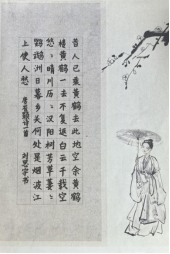 昔人已乘黄鹤去此地空余黄鹤
楼黄鹤一去不复返白云千载空
悠々晴川历々汉阳树芳草萋々
鹦鹉洲日暮乡关何处是烟波江
上使人愁 唐崔颢诗一首